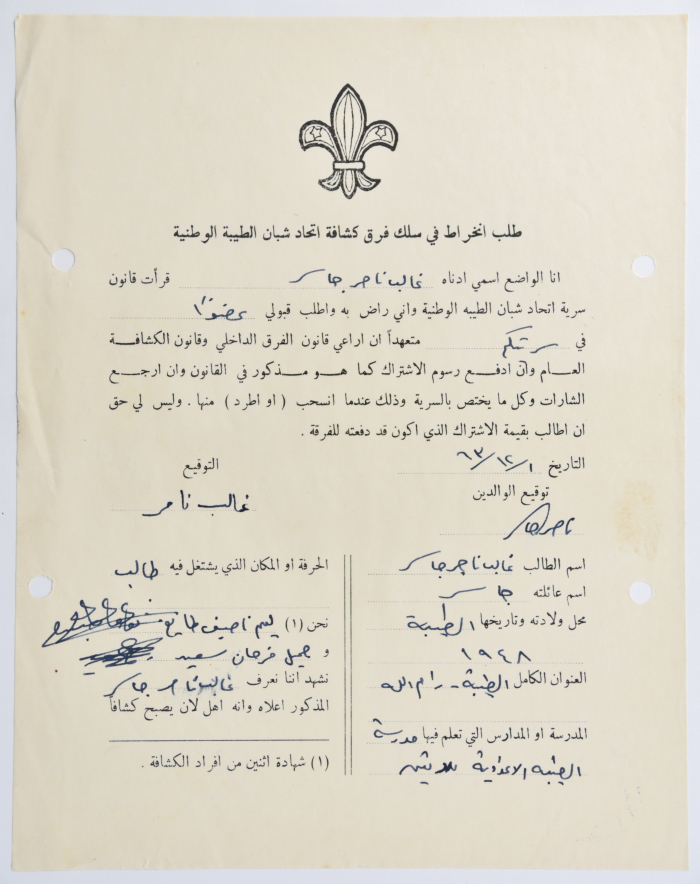 طلب انخراط في سلك فرق كشافة اتحاد شبان الطيبة الوطنية
انا الواضع اسمي ادناه غالب ناصر جاسر قرأت قانون
سرية اتحاد شبان الطيبه الوطنية واني راض به واطلب قبولي عضوًا
في سريتكم متعهداً ان اراعي قانون الفرق الداخلي وقانون الكشافة
العام وان ادفع رسوم الاشتراك كما هو مذكور في القانون وان ارجع
الشارات وكل ما يختص بالسرية وذلك عندما انسحب ( او اطرد ) منها . وليس لي حق
ان اطالب بقيمة الاشتراك الذي اكون قد دفعته للفرقة .
التاريخ ١/١٢/٦٣
التوقيع
غالب ناصر
توقيع الوالدين
ناصر جاسر
اسم الطالب غالب ناصر جاسر
اسم عائلته جاسر
محل ولادته وتاريخها الطيبة
١٩٤٨
العنوان الكامل الطيبة - رام الله
المدرسة او المدارس التي تعلم فيها مدرسة
الطيبه الاعدادية للاتين
الحرفة او المكان الذي يشتغل فيه طالب
نحن (١) ناصيف طايع
و جميل فرحان سعيد
نشهد اننا نعرف غالب ناصر جاسر
المذكور اعلاه وانه اهل لان يصبح كشافاً
(١) شهادة اثنين من افراد الكشافة .